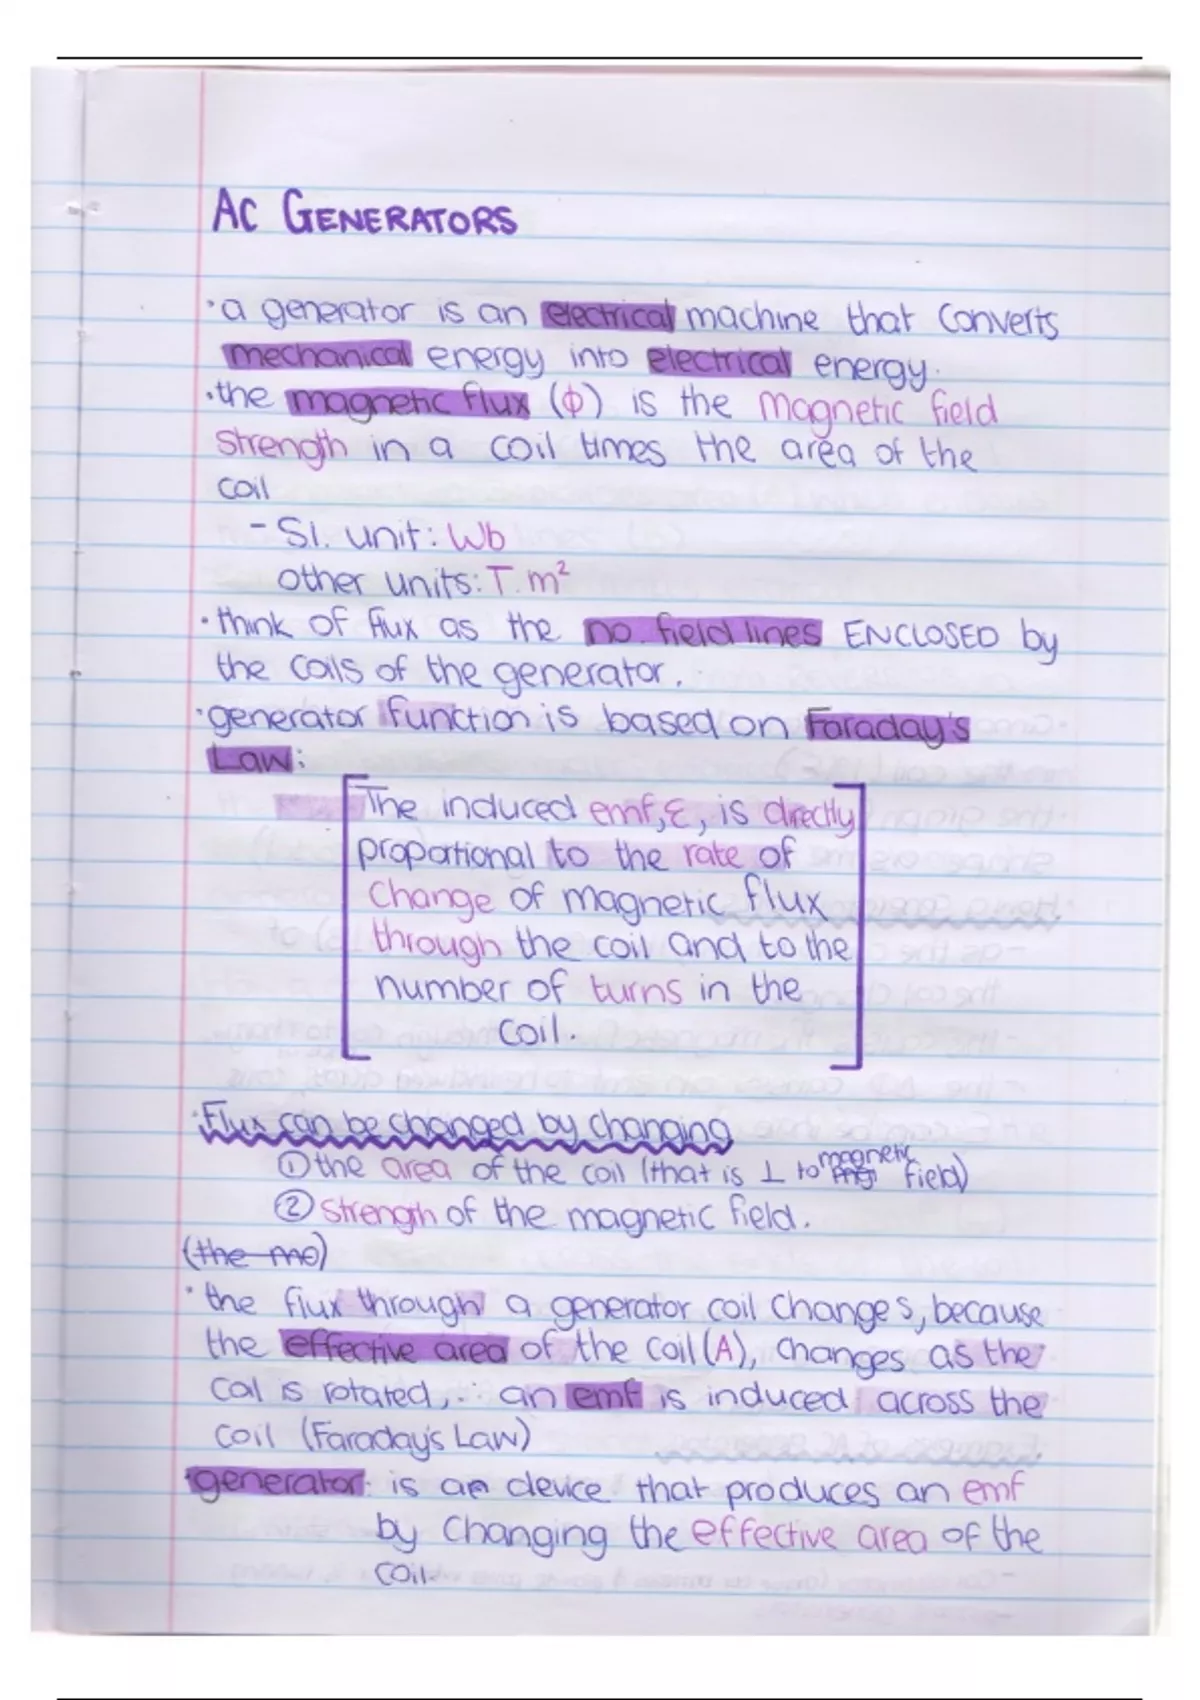 AC GENERATORS
· a generator is an electrical machine that converts
mechanical energy into electrical energy.
· the magnetic flux (Φ) is the magnetic field
strength in a coil times the area of the
coil
- SI. unit: Wb
other units: T.m²
· think of flux as the no. field lines ENCLOSED by
the coils of the generator.
· generator function is based on Faraday's
Law:
The induced emf, ε, is directly
proportional to the rate of
change of magnetic flux
through the coil and to the
number of turns in the
coil.
· Flux can be changed by changing
① the area of the coil (that is ⊥ to magnetic field)
② strength of the magnetic field.
(the mo)
· the flux through a generator coil changes, because
the effective area of the coil (A), changes as the
coil is rotated, ∴ an emf is induced across the
coil (Faraday's Law)
· generator: is an device that produces an emf
by changing the effective area of the
coil.